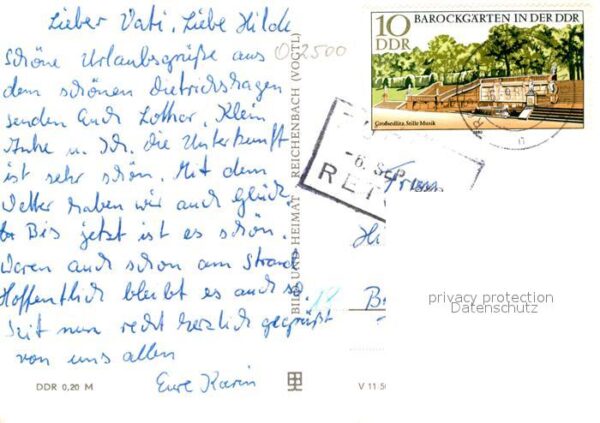 Lieber Vati, Liebe Hilde
Schöne Urlaubsgrüße aus
dem schönen Dietrichshagen
senden Euch Lothar, Klein
Anke u. Ich. Die Unterkunft
ist sehr schön. Mit dem
Wetter haben wir auch Glück.
Bis jetzt ist es schön.
Waren auch schon am Strand
Hoffentlich bleibt es auch so.
Seit nun recht herzlich gegrüßt
von uns allen
Eure Karin
DDR 0,20 M
V 11 50
BILD UND HEIMAT REICHENBACH (VOGTL)
02500
10
DDR
BAROCKGÄRTEN IN DER DDR
Großsedlitz, Stille Musik
-6. SEP.
RET
Frau
Hi
B
privacy protection
Datenschutz